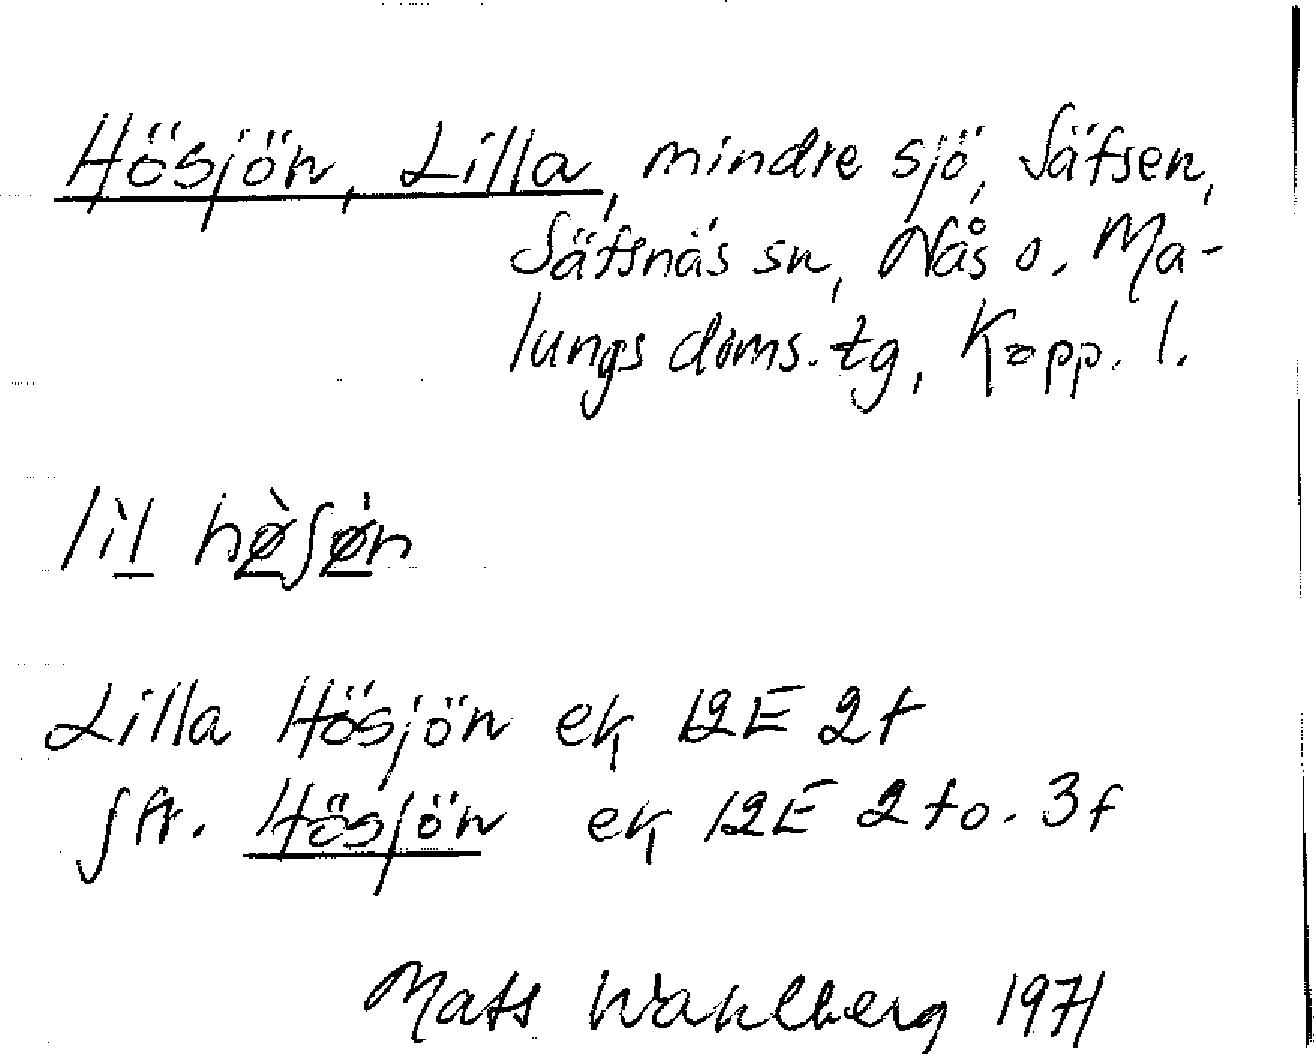 Hösjön, Lilla, mindre sjö, Säfsen,
Säfsnäs sn, Nås o. Ma-
lungs doms. tg, Kopp. l.
lìl hø̀ʃø̀n
Lilla Hösjön ek 12E 2f
jfr. Hösjön ek 12E 2f o. 3f
Mats Wahlberg 1971